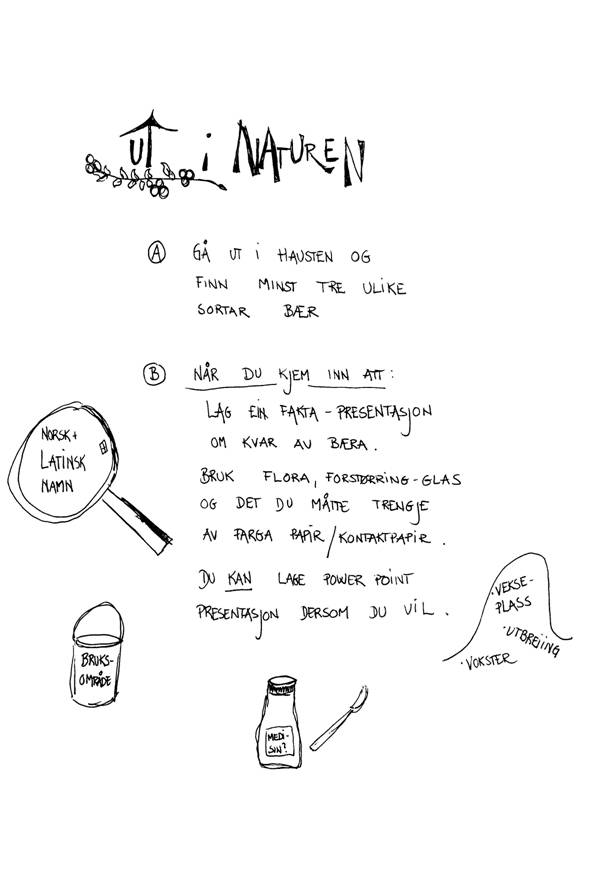 UT i NATUREN
A GÅ UT I HAUSTEN OG
FINN MINST TRE ULIKE
SORTAR BÆR
B NÅR DU KJEM INN ATT:
LAG EIN FAKTA-PRESENTASJON
OM KVAR AV BÆRA.
BRUK FLORA, FORSTØRRING-GLAS
OG DET DU MÅTTE TRENGJE
AV FARGA PAPIR/KONTAKTPAPIR.
DU KAN LAGE POWER POINT
PRESENTASJON DERSOM DU VIL.
NORSK +
LATINSK
NAMN
BRUKS-
OMRÅDE
MEDI-
SIN?
·VEKSE-
PLASS
·UTBREIING
·VOKSTER